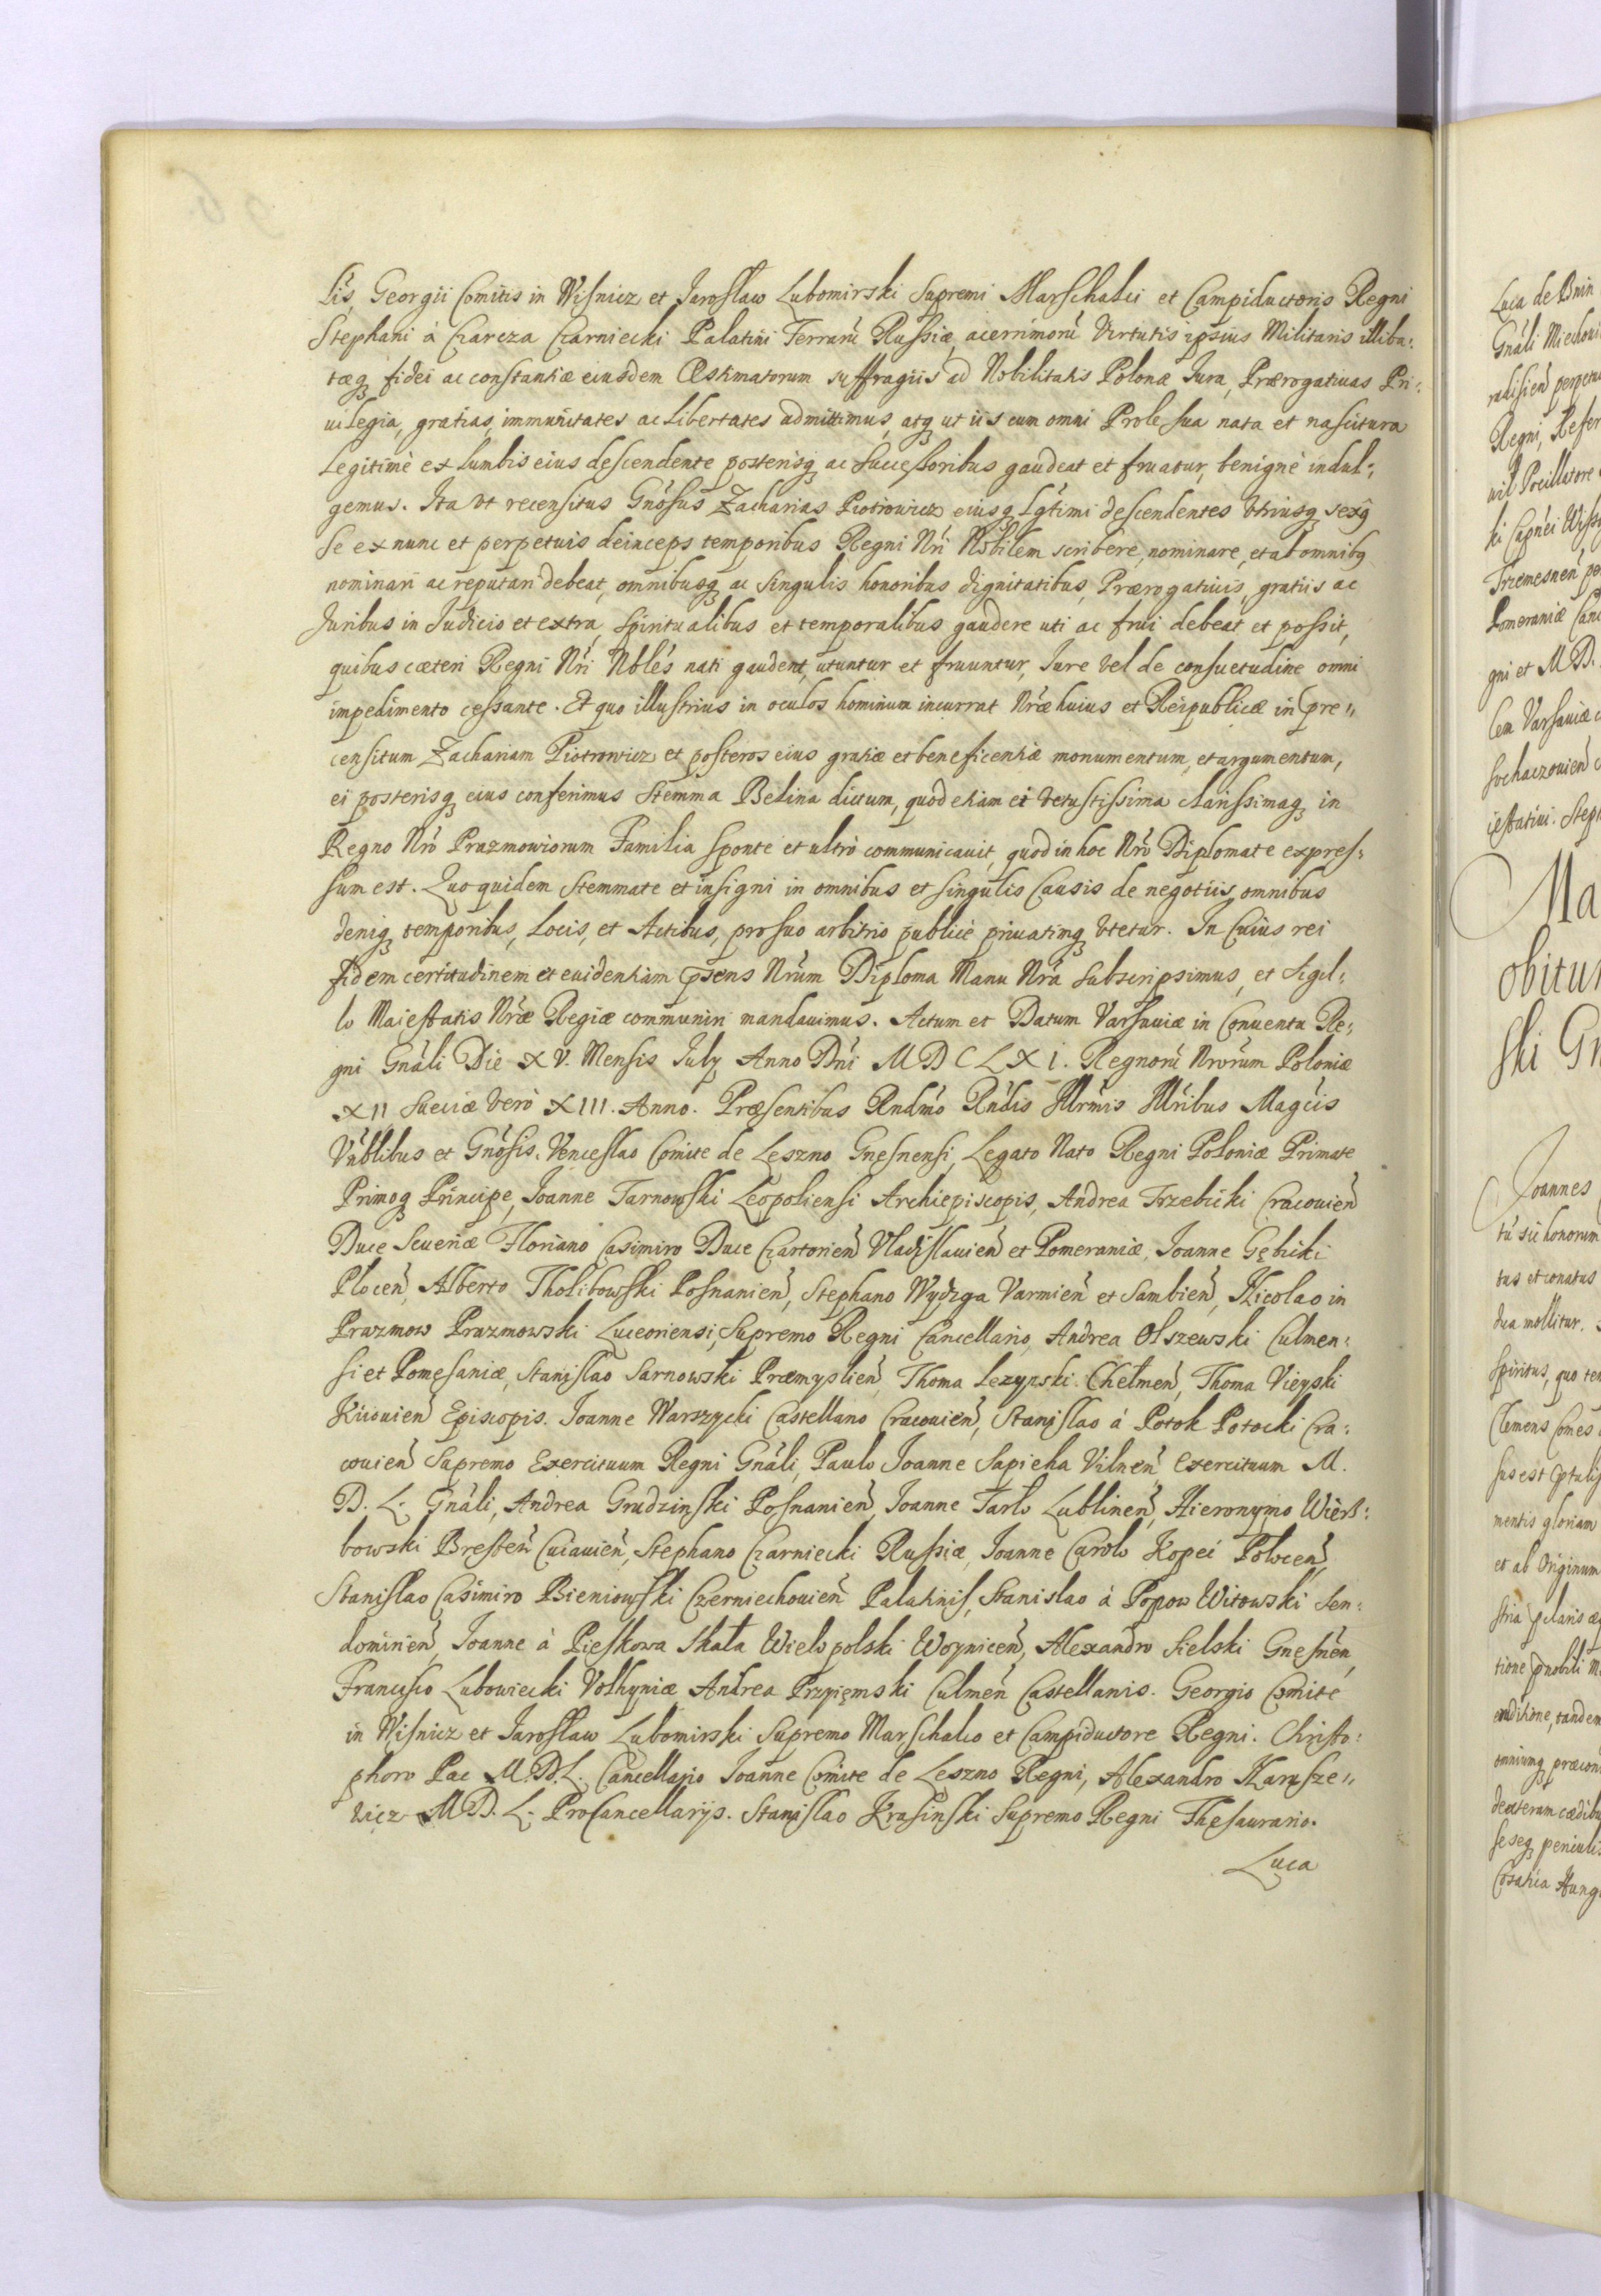 lis, Georgii Comitis in Wisnicz et Jaroslaw Lubomirski Supremi Marschalci et Campiductoris Regni
Stephani à Czarcza Czarniecki Palatini Terrarũ Russiæ, acerrimorũ Virtutis ipsius Militaris illiba:
tæq́ fidei ac constantiæ eiusdem Æstimatorum suffragiis ad Nobilitatis Polonæ Iura, Prærogatiuas Pri:
uilegia, gratias, immunitates ac Libertates admittimus, atq́ ut iis cum omni Prole sua nata et nascitura
Legitimè ex Lumbis eius descendente posterisq́ ac Successoribus gaudeat et fruatur, benignè indul:
gemus. Ita vt recensitus Gnősus Zacharias Piotrowicz eiusq́ Lg̃timi descendentes vtriusq́ sexq́
se ex nunc et perpetuis deinceps temporibus Regni Nŕi Nobilem scribere, nominare, et ab omnibq́
nominari ac reputari debeat, omnibusq́ ac singulis honoribus dignitatibus, Prærogatiuis, gratiis ac
Juribus in Judicio et extra, Spiritualibus et temporalibus gaudere uti ac frui debeat et possit,
quibus cæteri Regni Nŕi Nblés nati gaudent, utuntur et fruuntur, Iure vel de consuetudine omni
impedimento cessante. Et quo illustrius in oculos hominum incurrat Nŕæ huius et Reipublicæ in pre"
censitum Zachariam Piotrowicz et posteros eius gratiæ et beneficentiæ monumentum, et argumentum,
ei posterisq́ eius conferimus Stemma Belina dictum, quod etiam ei vetustissima clarissimaq́ in
Regno Nŕo Prazmowiorum Familia sponte et ultrò communicauit, quod in hoc Nŕo Diplomate expres:
sum est. Quo quidem Stemmate et insigni in omnibus et singulis Causis de negotiis, omnibus
deniq́ temporibus, Locis, et Actibus, pro suo arbitrio publicè priuatimq́ vtetur. In Cuius rei
fidem certitudinem et euidentiam p̃sens Nŕum Diploma Manu Nŕa subscripsimus, et Sigil:
lo Maiestatis Nŕæ Regiæ communiri mandauimus. Actum et Datum Varsauiæ in Conuentu Re:
gni Gnáli Die XV. Mensis July Anno Dńi MDCLXI. Regnorũ Nrorum Poloniæ
XII Sueciæ verò XIII. Anno. Præsentibus Rndmó Rńdis Illrm̃is Illŕibus Magćis
Vńblibus et Gnősis. Venceslao Comite de Leszno Gnesnensi, Legato Nato Regni Poloniæ Primate
Primoq́ Principe, Joanne Tarnowski Leopoliensi Archiepiscopis, Andrea Trzebicki Cracouień
Duce Seueriæ Floriano Casimiro Duce Czartorień Vladislauień et Pomeraniæ, Joanne Gębicki
Płoceń, Alberto Tholibowski Posnanień, Stephano Wydzga Varmień et Sambień, Nicolao in
Prazmow Prazmowski Luceoriensi, Supremo Regni Cancellario, Andrea Olszewski Culmen:
si et Pomesaniæ, Stanislao Sarnowski Præmyslień, Thoma Lezyński Chełmeń, Thoma Vieyski
Kiiouień Episcopis. Joanne Warszycki Castellano Cracouień, Stanislao á Potok Potocki Cra:
couień Supremo Exercituum Regni Gnáli, Paulo Joanne Sapieha Vilneń Exercituum M.
D. L. Gnáli, Andrea Grudzinski Posnanień, Joanne Tarło Lublineń, Hieronymo Wierz:
bowski Bresteń Cuiauień, Stephano Czarniecki Russiæ, Joanne Carolo Kopeć Poloceń,
Stanislao Casimiro Bieniowski Czerniechouień Palatinis, Stanislao à Popow Witowski Sen:
domirień, Joanne à Pieskowa Skała Wielopolski Woyniceń, Alexandro Sielski Gnesneń,
Francisco Lubowiecki Volhyniæ Andrea Przyięmski Culmeń Castellanis. Georgio Comite
in Wisnicz et Jaroslaw Lubomirski Supremo Marschalco et Campiductore Regni. Christo:
phoro Pac M.D.L. Cancellario Joanne Comite de Leszno Regni, Alexandro Narusze"
vicz M D. L. ProCancellarijs. Stanislao Krasinski Supremo Regni Thesaurario.
Luca
Luca de Bnin
Gnáli Miechoui
Regni, Refer
Trzemesneń
Pomeraniæ
gni et M D.
Varsauiæ
Sochaczouień
Ma
obitu
ski Gn
Joannes
honorum
tus et conatus
dua mollitur.
Spiritus, quo
Clemens Comes
mentis gloriam
et ab Originum
tandem